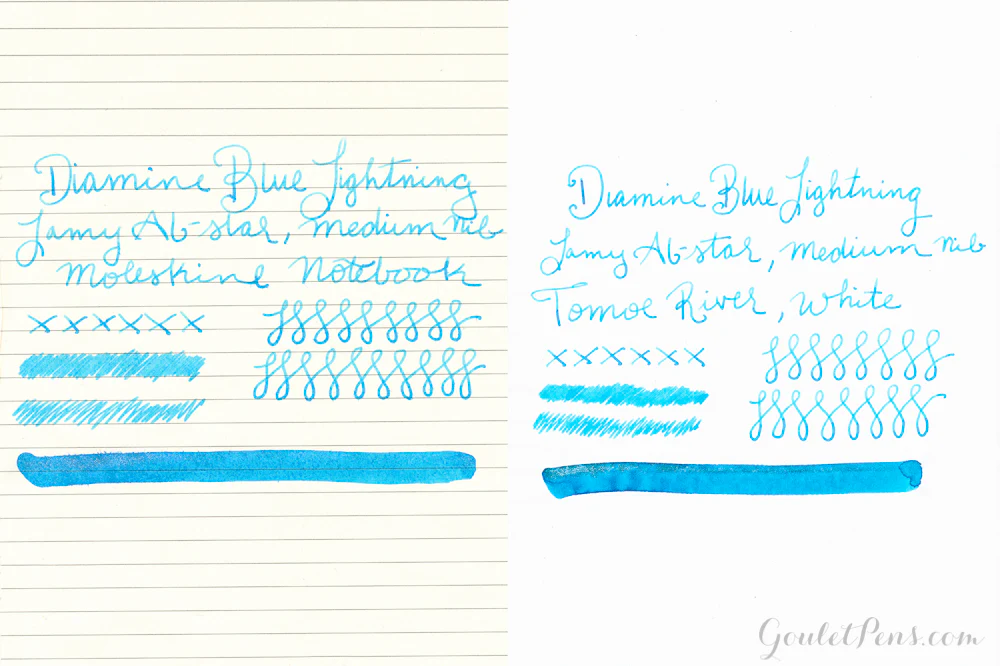 Diamine Blue Lightning
Lamy Al-star, medium nib
Moleskine Notebook
x x x x x x
Diamine Blue Lightning
Lamy Al-star, medium nib
Tomoe River, White
x x x x x x
GouletPens.com